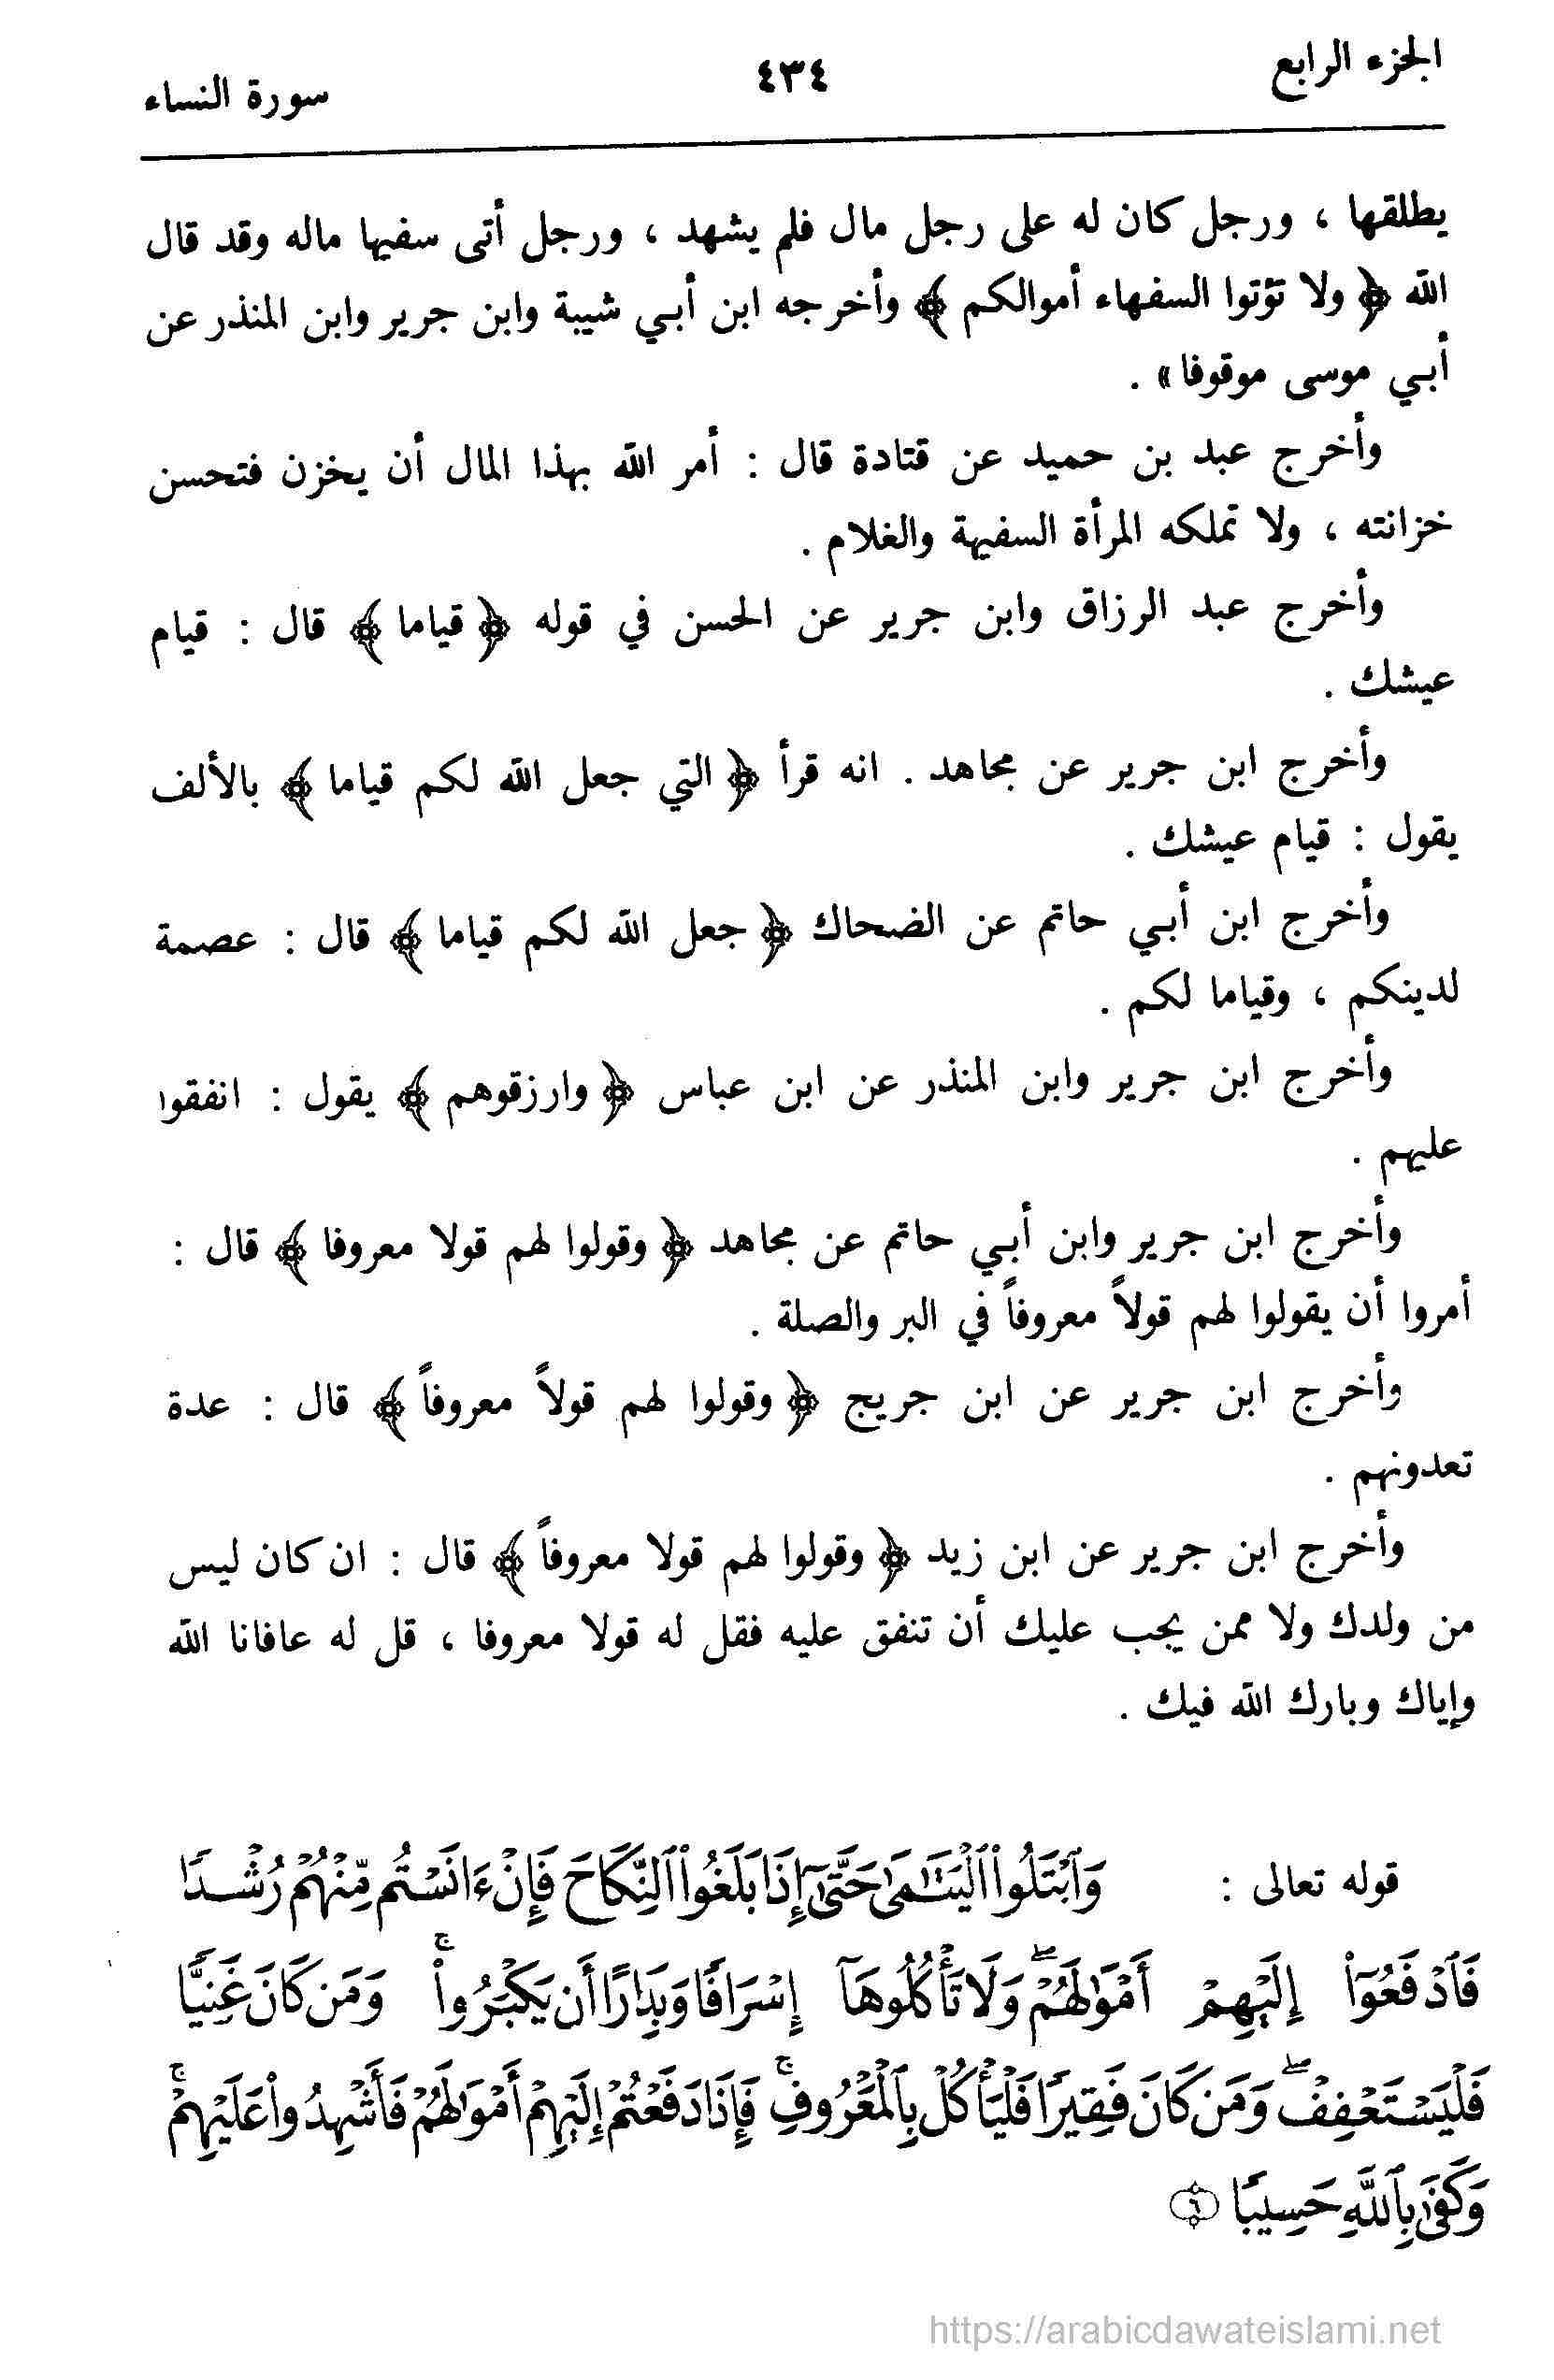 الجزء الرابع ٤٣٤ سورة النساء
يطلقها ، ورجل كان له على رجل مال فلم يشهد ، ورجل أتى سفيها ماله وقد قال
الله ﴿ ولا تؤتوا السفهاء أموالكم ﴾ وأخرجه ابن أبي شيبة وابن جرير وابن المنذر عن
أبي موسى موقوفا» .
وأخرج عبد بن حميد عن قتادة قال : أمر الله بهذا المال أن يخزن فتحسن
خزانته ، ولا تملكه المرأة السفيهة والغلام .
وأخرج عبد الرزاق وابن جرير عن الحسن في قوله ﴿ قياما ﴾ قال : قيام
عيشك .
وأخرج ابن جرير عن مجاهد . انه قرأ ﴿ التي جعل الله لكم قياما ﴾ بالألف
يقول : قيام عيشك .
وأخرج ابن أبي حاتم عن الضحاك ﴿ جعل الله لكم قياما ﴾ قال : عصمة
لدينكم ، وقياما لكم .
وأخرج ابن جرير وابن المنذر عن ابن عباس ﴿ وارزقوهم ﴾ يقول : انفقوا
عليهم .
وأخرج ابن جرير وابن أبي حاتم عن مجاهد ﴿ وقولوا لهم قولا معروفا ﴾ قال :
أمروا أن يقولوا لهم قولاً معروفاً في البر والصلة .
وأخرج ابن جرير عن ابن جريج ﴿ وقولوا لهم قولاً معروفاً ﴾ قال : عدة
تعدونهم .
وأخرج ابن جرير عن ابن زيد ﴿ وقولوا لهم قولا معروفاً ﴾ قال : ان كان ليس
من ولدك ولا ممن يجب عليك أن تنفق عليه فقل له قولا معروفا ، قل له عافانا الله
وإياك وبارك الله فيك .
قوله تعالى : وَٱبْتَلُوا۟ ٱلْيَتَـٰمَىٰ حَتَّىٰٓ إِذَا بَلَغُوا۟ ٱلنِّكَاحَ فَإِنْ ءَانَسْتُم مِّنْهُمْ رُشْدًا
فَٱدْفَعُوٓا۟ إِلَيْهِمْ أَمْوَٰلَهُمْ ۖ وَلَا تَأْكُلُوهَآ إِسْرَافًا وَبِدَارًا أَن يَكْبَرُوا۟ ۚ وَمَن كَانَ غَنِيًّا
فَلْيَسْتَعْفِفْ ۖ وَمَن كَانَ فَقِيرًا فَلْيَأْكُلْ بِٱلْمَعْرُوفِ ۚ فَإِذَا دَفَعْتُمْ إِلَيْهِمْ أَمْوَٰلَهُمْ فَأَشْهِدُوا۟ عَلَيْهِمْ ۚ
وَكَفَىٰ بِٱللَّهِ حَسِيبًا ٦
https://arabicdawateislami.net